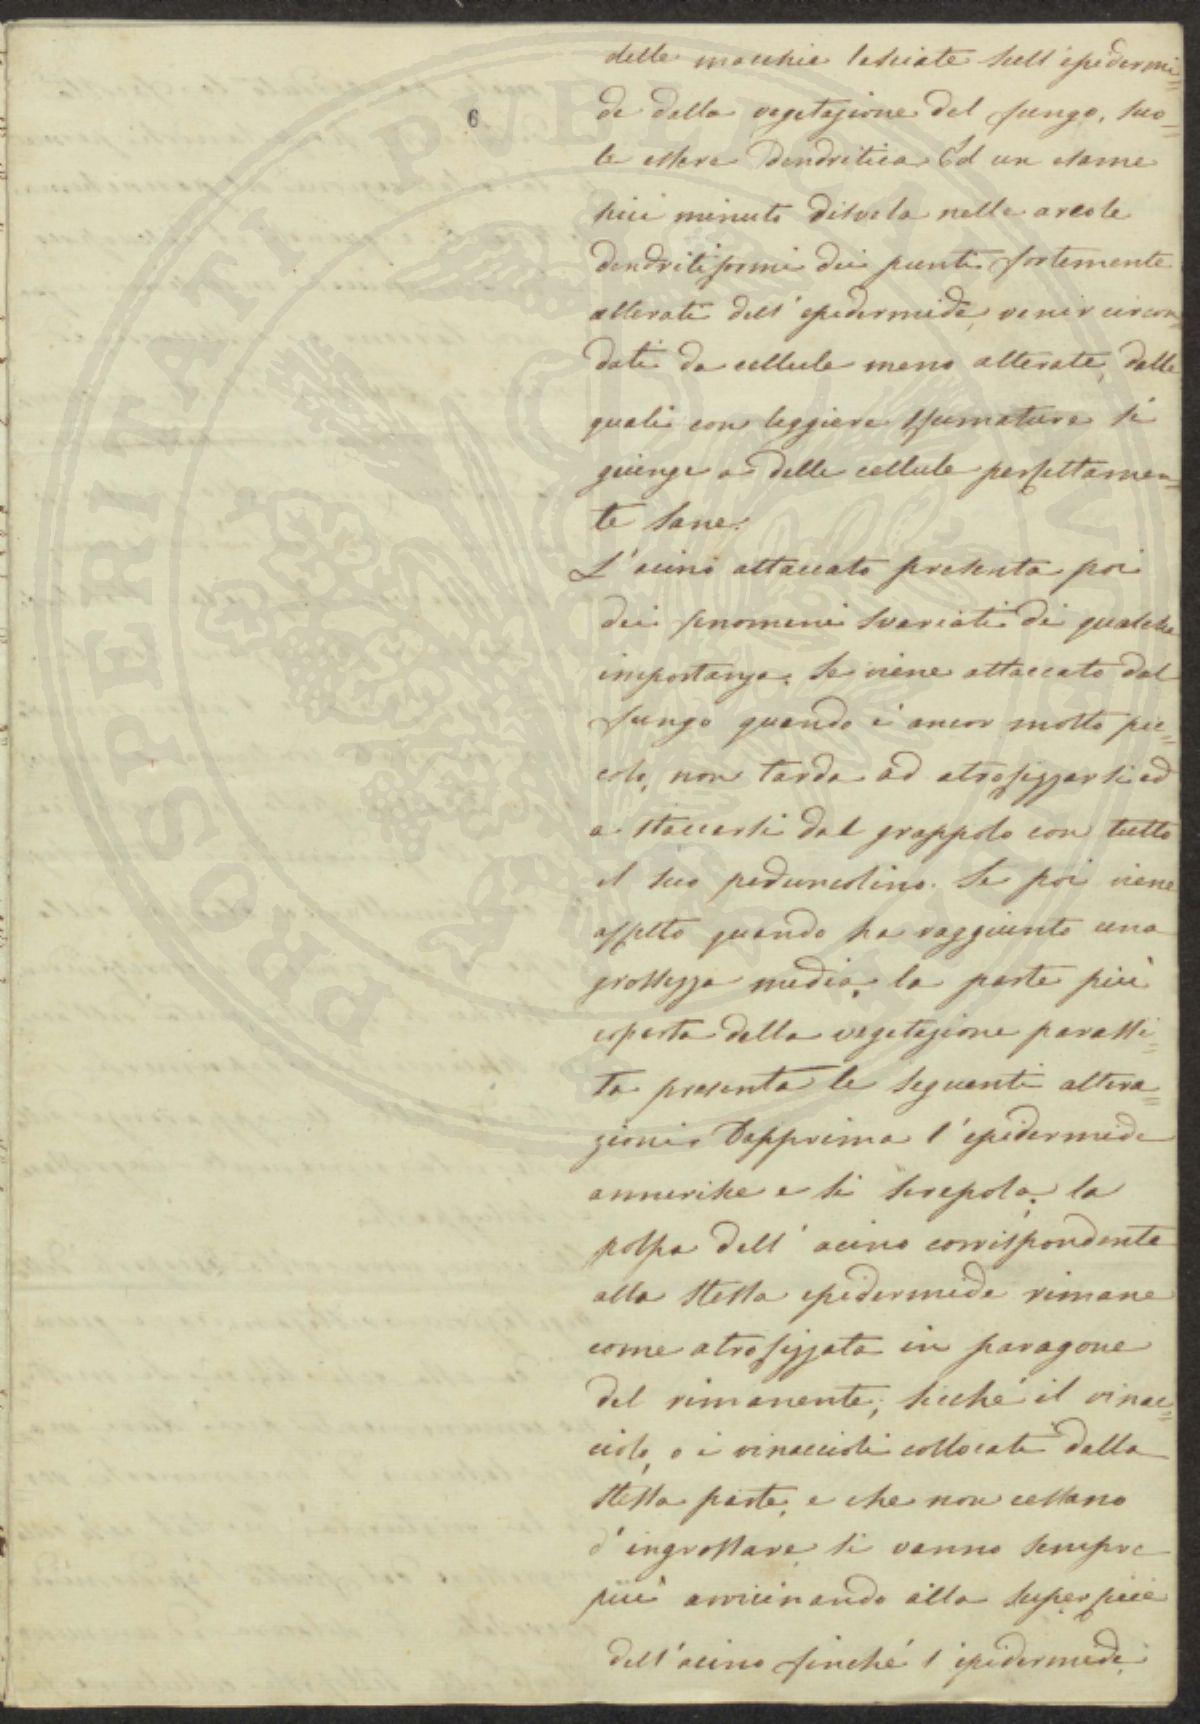 6
delle macchie lasciate sull'epidermi=
de dalla vegetazione del fungo, suo=
le essere dendritica. Ed un esame
più minuto disvela nelle areole
dendritiformi dei punti fortemente
alterati dell'epidermide, venir circon=
dati da cellule meno alterate, dalle
quali con leggiere sfumature si
giunge a delle cellule perfettamen=
te sane.
L'acino attaccato presenta poi
dei fenomeni svariati di qualche
importanza. Se viene attaccato dal
fungo quando è ancor molto pic=
colo, non tarda ad atrofizzarsi ed
a staccarsi dal grappolo con tutto
il suo peduncolino. Se poi viene
affetto quando ha raggiunto una
grossezza media, la parte più
coperta dalla vegetazione parassi=
ta presenta le seguenti altera=
zioni. Dapprima l'epidermide
annerisce e si screpola, la
polpa dell'acino corrispondente
alla stessa epidermide rimane
come atrofizzata in paragone
del rimanente; sicché il vinac=
ciolo, o i vinaccioli collocati dalla
stessa parte, e che non cessano
d'ingrossare si vanno sempre
più avvicinando alla superficie
dell'acino finché l'epidermide
PROSPERITATI PVBLICAE